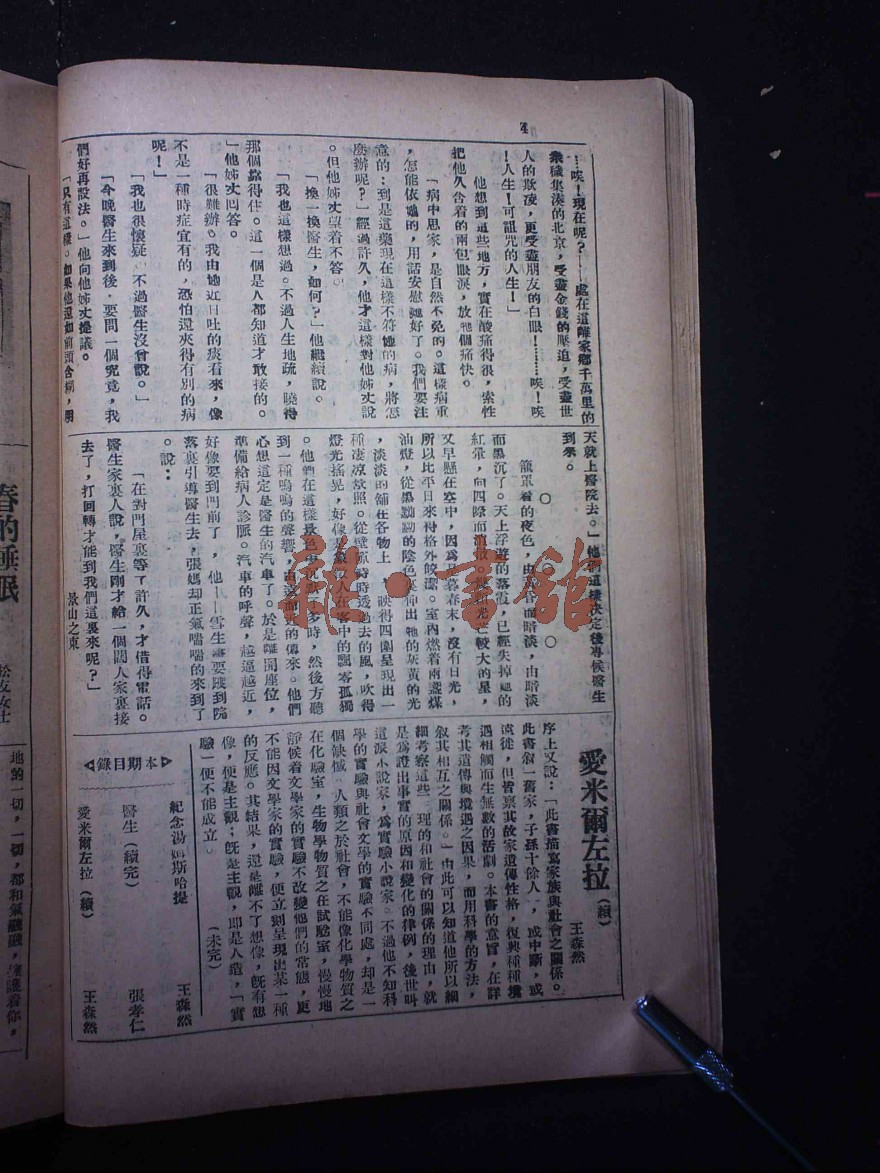 4
…唉!現在呢?……處在這離家鄉千萬里的
衆穢集湊的北京,受盡金錢的壓迫,受盡世
人的欺凌,更受盡朋友的白眼!……唉!唉
!人生!可詛咒的人生!」
他想到這些地方,實在酸痛得很,索性
把他久含着的兩包眼淚,放牠個痛快。
「病中思家,是自然不免的。這樣病重
,怎能依她的,用話安慰她好了。我們要注
意的:到是這藥現在這樣不符她的病,將怎
麼辦呢?」經過許久,他才這樣對他姊丈說
。但他姊丈望着不答。
「換一換醫生,如何?」他繼續說。
「我也這樣想過。不過人生地疏,曉得
那個靠得住。這一個是人都知道才敢接的。
」他姊丈回答。
「很難辦。我由她近日吐的痰看來,像
不是一種時症宜有的,恐怕還夾得有別的病
呢!」
「我也很懷疑。不過醫生沒曾說。」
「今晚醫生來到後,要問一個究竟,我
們好再設法。」他向他姊丈提議。
「只有這樣。如果他還如前頭含糊,明
天就上醫院去。」他們這樣決定後專候醫生
到來。
○ ○ ○ ○
籠罩着的夜色,由 而暗淡,由暗淡
而黑沉了。天上浮遊的落霞,已經失掉她的
紅暈,向四際而消散。 光芒較大的星,
又早懸在空中,因爲是暮春末,沒有日光,
所以比平日來得格外皎潔。室內燃着兩盞煤
油燈,從黑黝黝的陰色裏伸出牠的灰黃的光
,淡淡的鋪在各物上,映得四圍呈現出一
種凄涼景照。從壁 時時透過去的風,吹得
燈光搖晃,好像 人在客中的飄零孤獨
。他們在這樣景色中沉默了多時,然後方聽
到一種嗚嗚的聲響,由遠而近的傳來。他們
心想這定是醫生的汽車了。於是離開座位,
準備給病人診脈。汽車的呼聲,越逼越近,
好像要到門前了,他——雪生 要踱到院
落裏引導醫生去,張媽却正氣喘喘的來到了
。說:
「在對門屋裏等了許久,才借得電話。
醫生家裏人說,醫生剛才給一個闊人家裏接
去了,打回轉才能到我們這裏來呢?」
景山之東
愛米爾左拉(續)
王森然
序上又說:「此書描寫家族與社會之關係。
此書叙一舊家,子孫十餘人,或中斷,或
遠徙,但皆禀其故家遺傳性格,復與種種境
遇相觸而生無數的活劇。本書的意旨,在詳
考其遺傳與境遇之因果,而用科學的方法,
叙其相互之關係。」由此可以知道他所以細
細考察這些 理的和社會的關係的理由,就
是爲證出事實的原因和變化的律例,後世叫
這派小說家,爲實驗小說家。不過他不知科
學的實驗與社會文學的實驗不同處,却是一
個缺憾。人類之於社會,不能像化學物質之
在化驗室,生物學物質之在試驗室,慢慢地
靜候着文學家的實驗不改變他們的常態,更
不能因文學家的實驗,便立刻呈現出某一種
的反應。其結果,還是離不了想像,既有想
像,便是主觀;既是主觀,即是人造,「實
驗」便不能成立。
(未完)
本期目錄
紀念湯姆斯哈提 王森然
醫生(續完) 張孝仁
愛米爾左拉(續) 王森然
春的睡眠
松友女士
地的一切,一切,都和氣融融,擁護着你,
龍·書館